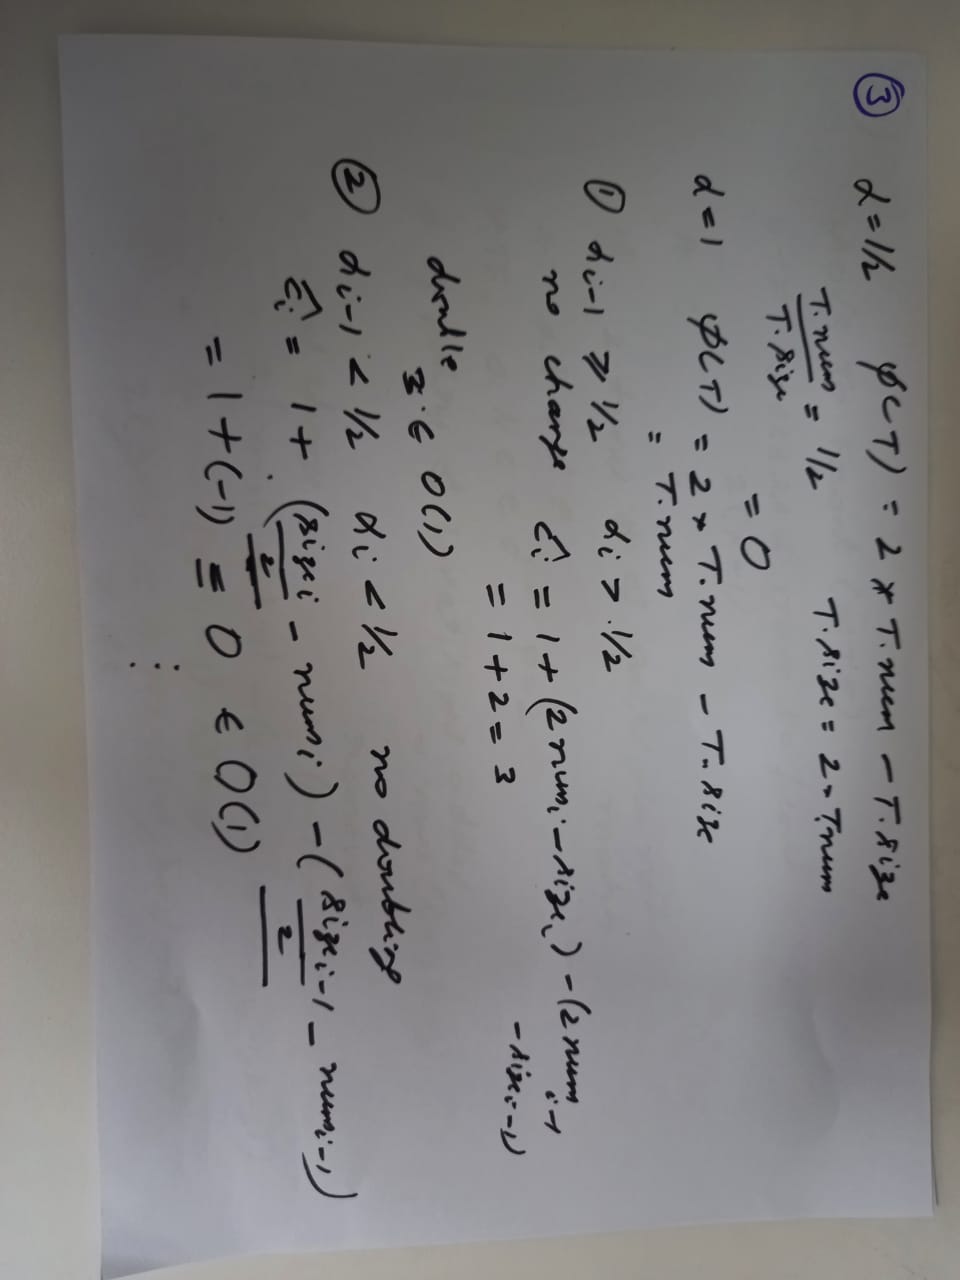 ③ α = 1/2 φ(T) = 2 * T.num - T.size
T.num / T.size = 1/2 T.size = 2 * T.num
= 0
α = 1 φ(T) = 2 * T.num - T.size
= T.num
① αi-1 ≥ 1/2 αi > 1/2
no change ĉi = 1 + (2 numi - sizei) - (2 numi-1 - sizei-1)
= 1 + 2 = 3
double 3 ∈ O(1)
② αi-1 < 1/2 αi < 1/2 no doubling
ĉi = 1 + (sizei / 2 - numi) - (sizei-1 / 2 - numi-1)
= 1 + (-1) = 0 ∈ O(1)